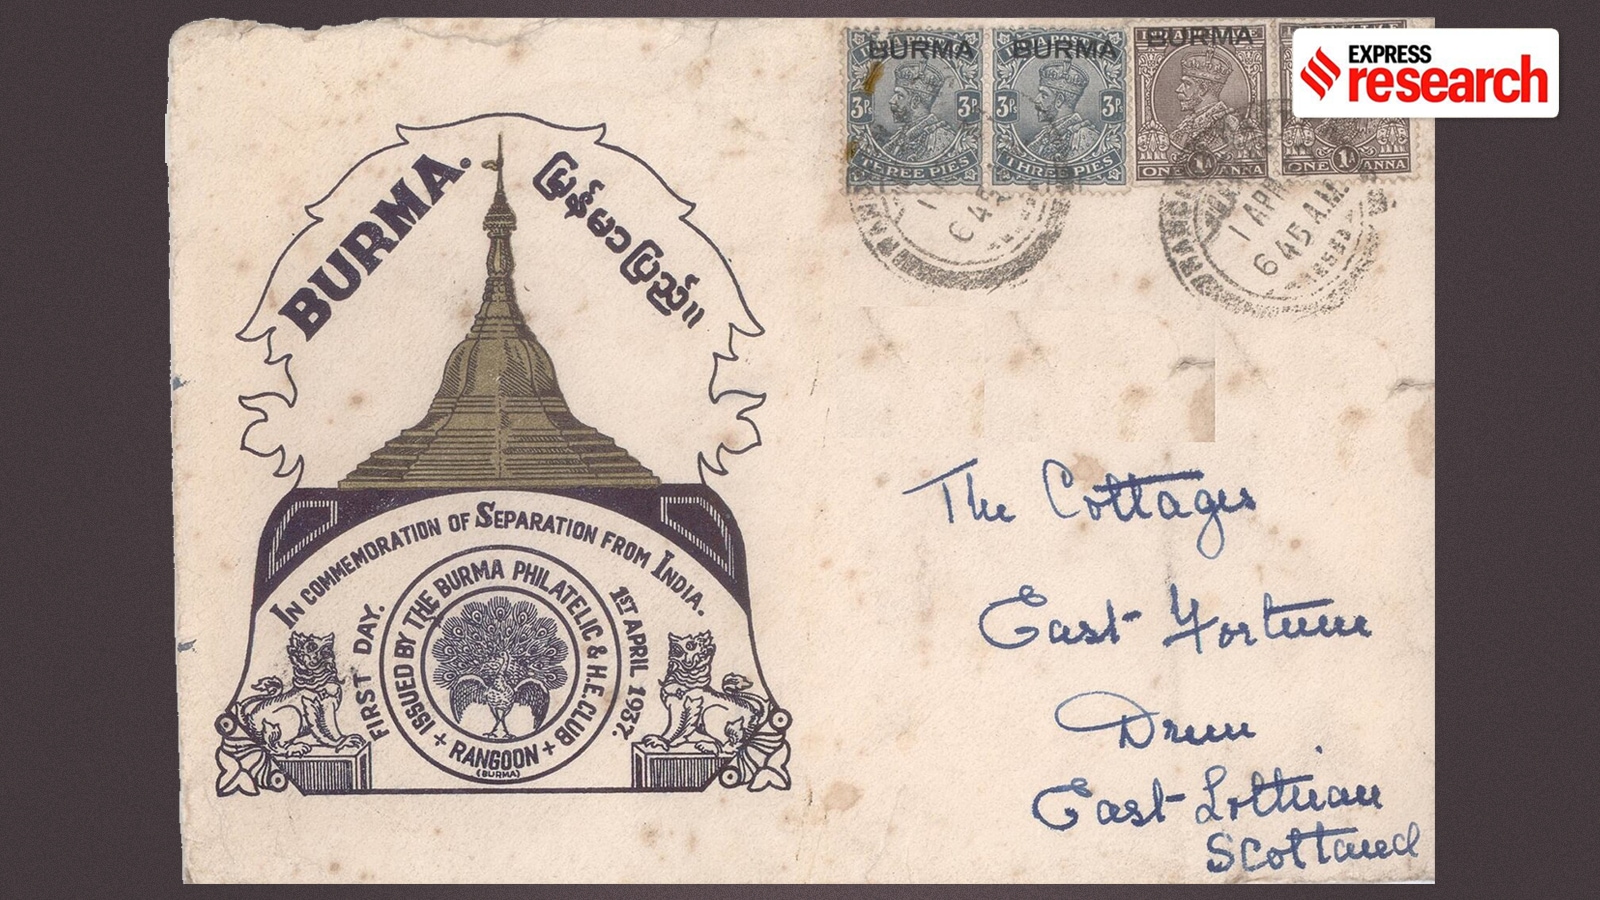 EXPRESS
research
BURMA.
မြန်မာပြည်။
IN COMMEMORATION OF SEPARATION FROM INDIA.
FIRST DAY.
1ST APRIL 1937.
ISSUED BY THE BURMA PHILATELIC & H.E. CLUB
+ RANGOON +
(BURMA)
BURMA BURMA BURMA
INDIA POSTAGE
3Ps 3Ps 3Ps 3Ps
THREE PIES THREE PIES ONE 1A ANNA ONE 1A ANNA
1
645
1 APR
645 A.M.
The Cottages
East Fortune
Drem
East Lothian
Scotland